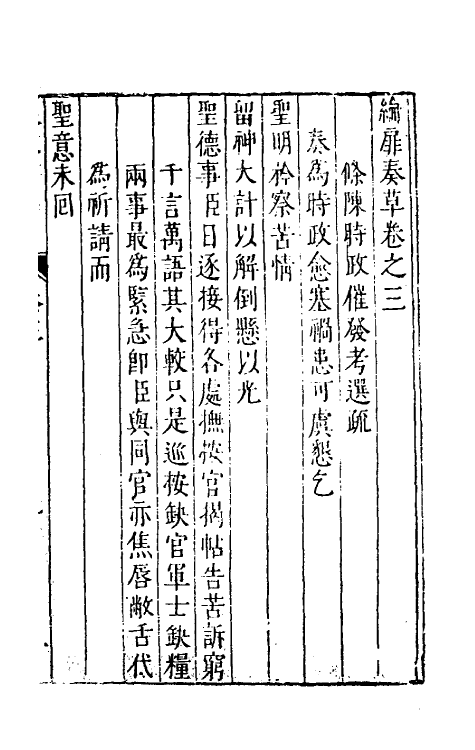 綸扉奏草卷之三
條陳時政催發考選疏
奏為時政愈塞禍患可虞懇乞
聖明矜察苦情
留神大計以解倒懸以光
聖德事臣日逐接得各處撫按官揭帖告苦訴窮
千言萬語其大較只是巡按缺官軍士缺糧
兩事最為緊急卽臣與同官亦焦唇敝舌代
為祈請而
聖意未回